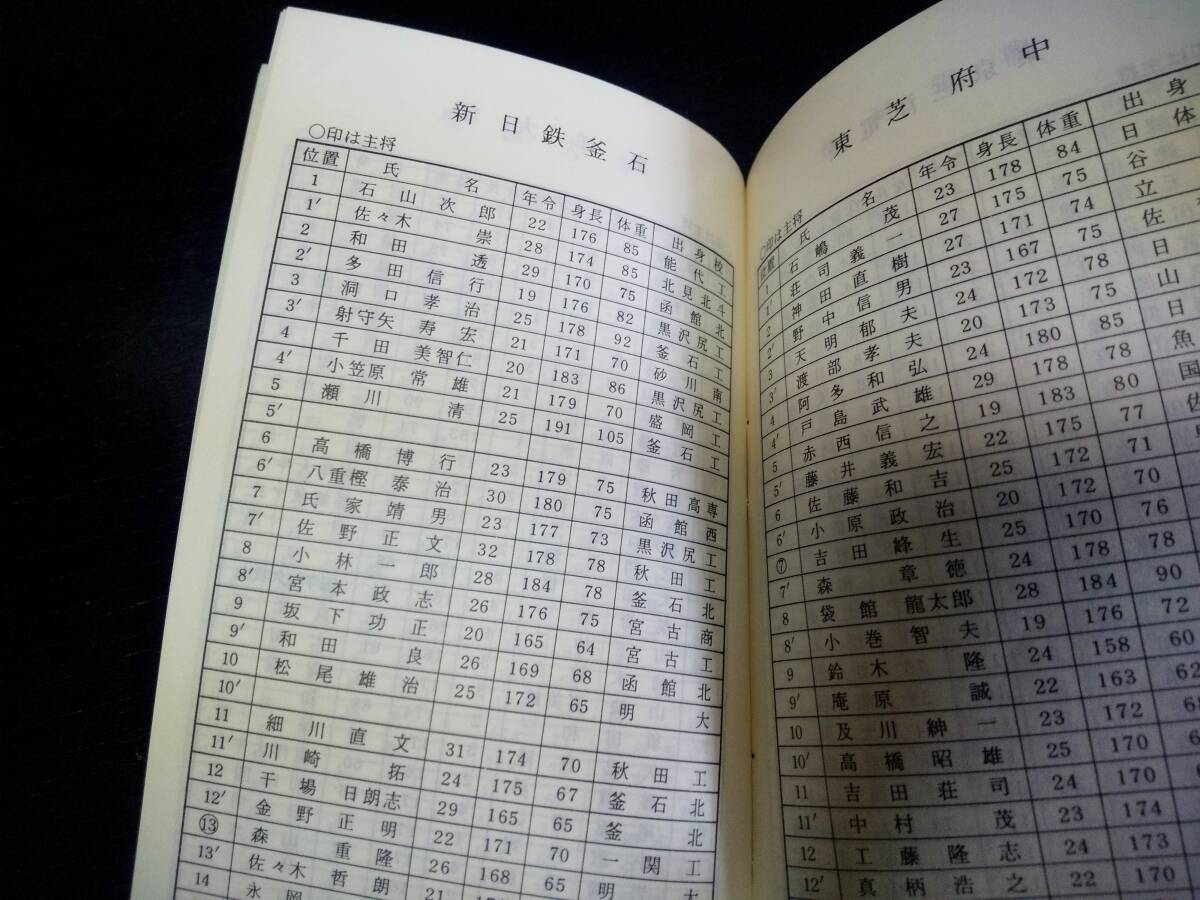 新日鉄釜石
○印は主将
位置 氏名 年令 身長 体重 出身校
1 石山次郎 22 176 85 能代工
1′ 佐々木崇 28 174 85 北見北斗
2 和田透 29 170 75 函館北
2′ 多田信行 19 176 82 黒沢尻工
3 洞口孝治 25 178 92 釜石工
3′ 射守矢寿宏 21 171 70 砂川南
4 千田美智仁 20 183 86 黒沢尻工
4′ 小笠原常雄 21 179 70 盛岡工
5 瀬川清 25 191 105 釜石工
5′
6 高橋博行 23 179 75 秋田高専
6′ 八重樫泰治 30 180 75 函館西
7 氏家靖男 23 177 73 黒沢尻工
7′ 佐野正文 32 178 78 秋田工
8 小林一郎 28 184 78 釜石北
8′ 宮本政志 26 176 75 宮古商
9 坂下功正 20 165 64 宮古工
9′ 和田良 26 169 68 函館北
10 松尾雄治 25 172 65 明大
10′
11 細川直文 31 174 70 秋田工
11′ 川崎拓 24 175 67 釜石北
12 干場日朗志 29 165 65 釜北
12′ 金野正明 22 171 70 一関工
⑬ 森重隆 26 168 65 明大
13′ 佐々木哲朗 21
14 永岡
東芝府中
○印は主将
位置 氏名 年令 身長 体重 出身
1 石嶋茂 23 178 84 日体
1′ 荘司義一 27 175 75 谷
2 神田直樹 27 171 74 立
2′ 野中信男 23 167 75 佐
3 天明郁夫 24 172 78 日
3′ 渡部孝夫 20 173 75 山
4 阿多和弘 24 180 85 日
4′ 戸島武雄 29 178 78 魚
5 赤西信之 19 183 80 国
5′ 藤井義宏 22 175 77 佐
6 佐藤和吉 25 172 71
6′ 小原政治 20 172 70
⑦ 吉田峰生 25 170 76
7′ 森章徳 24 178 78
8 袋館龍太郎 28 184 90
8′ 小巻智夫 19 176 72
9 鈴木隆 24 158 60
9′ 庵原誠 22 163 62
10 及川紳一 23 172
10′ 高橋昭雄 25 170
11 吉田荘司 24 170
11′ 中村茂 23 174
12 工藤隆志 24 173
12′ 真柄浩之 22 170